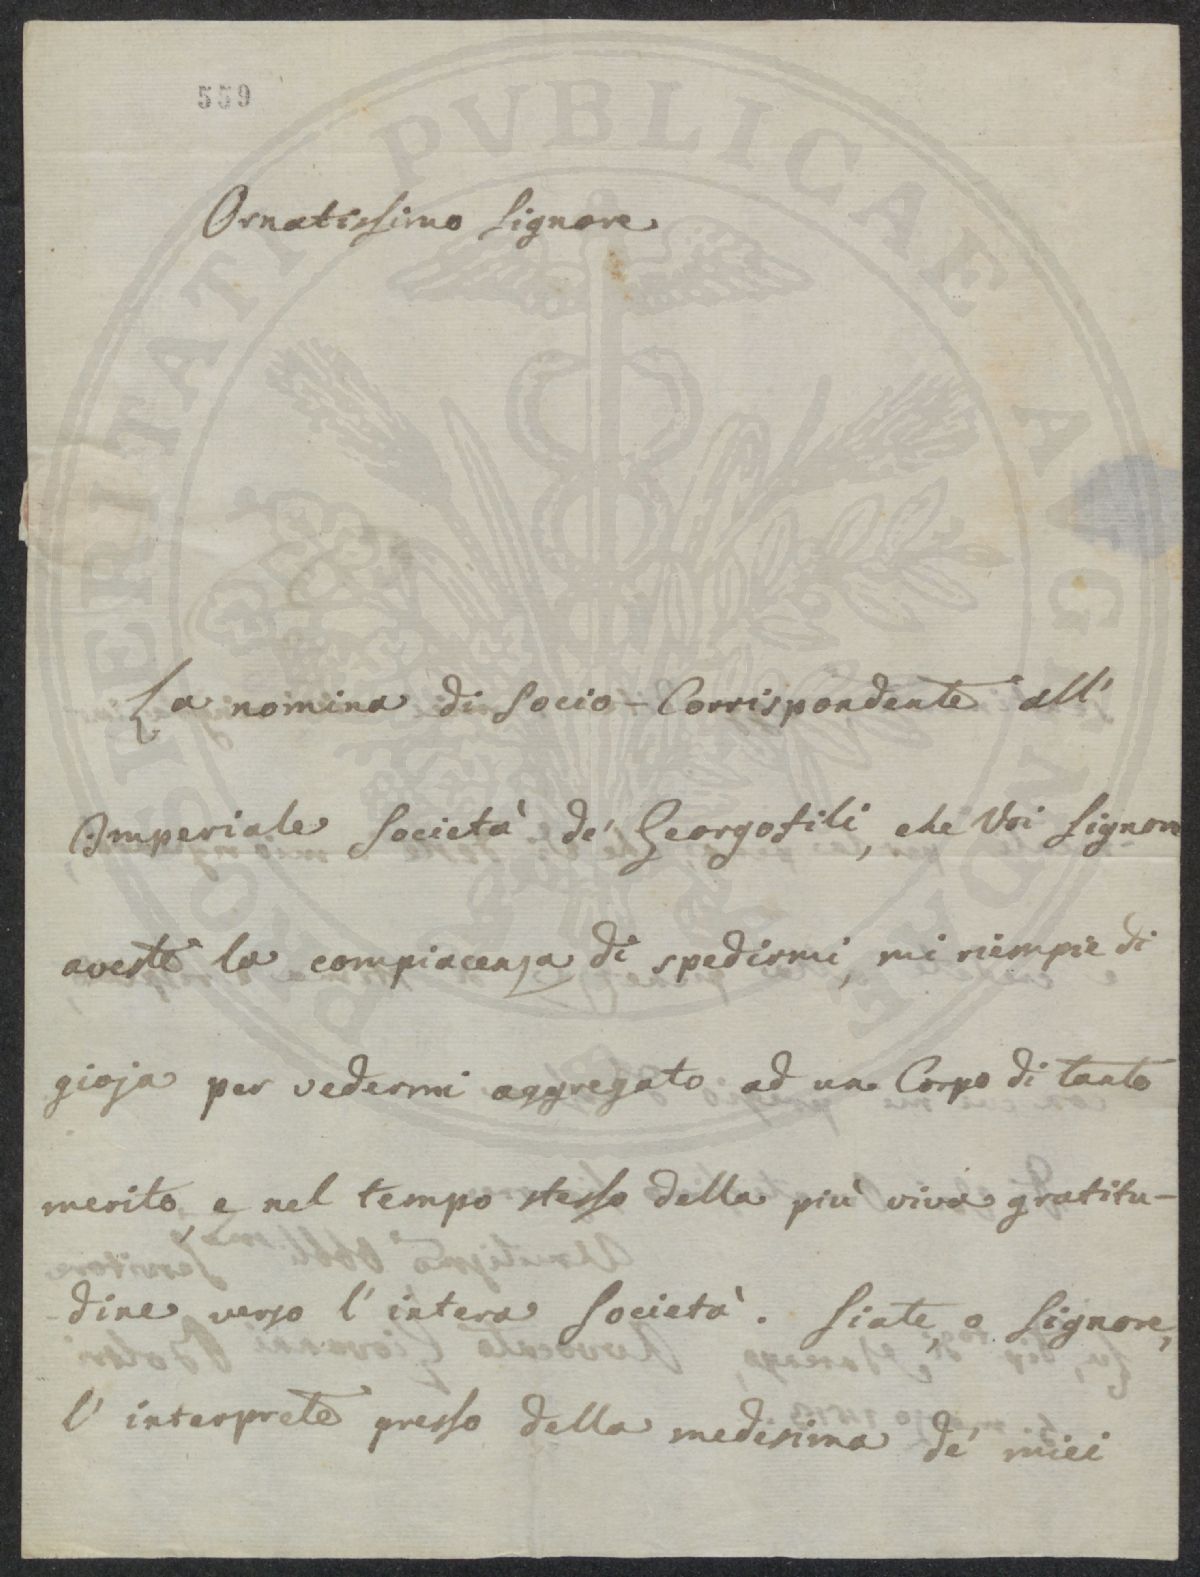 559
PROSPERITATI PVBLICAE AVGENDAE
Ornatissimo Signore
La nomina di Socio-Corrispondente all'
Imperiale Società de' Georgofili, che Voi Signore
aveste la compiacenza di spedirmi, mi riempie di
gioja per vedermi aggregato ad un Corpo di tanto
merito, e nel tempo stesso della più viva gratitu-
-dine verso l'intera Società. Siate, o Signore,
l'interprete presso della medesima de' miei